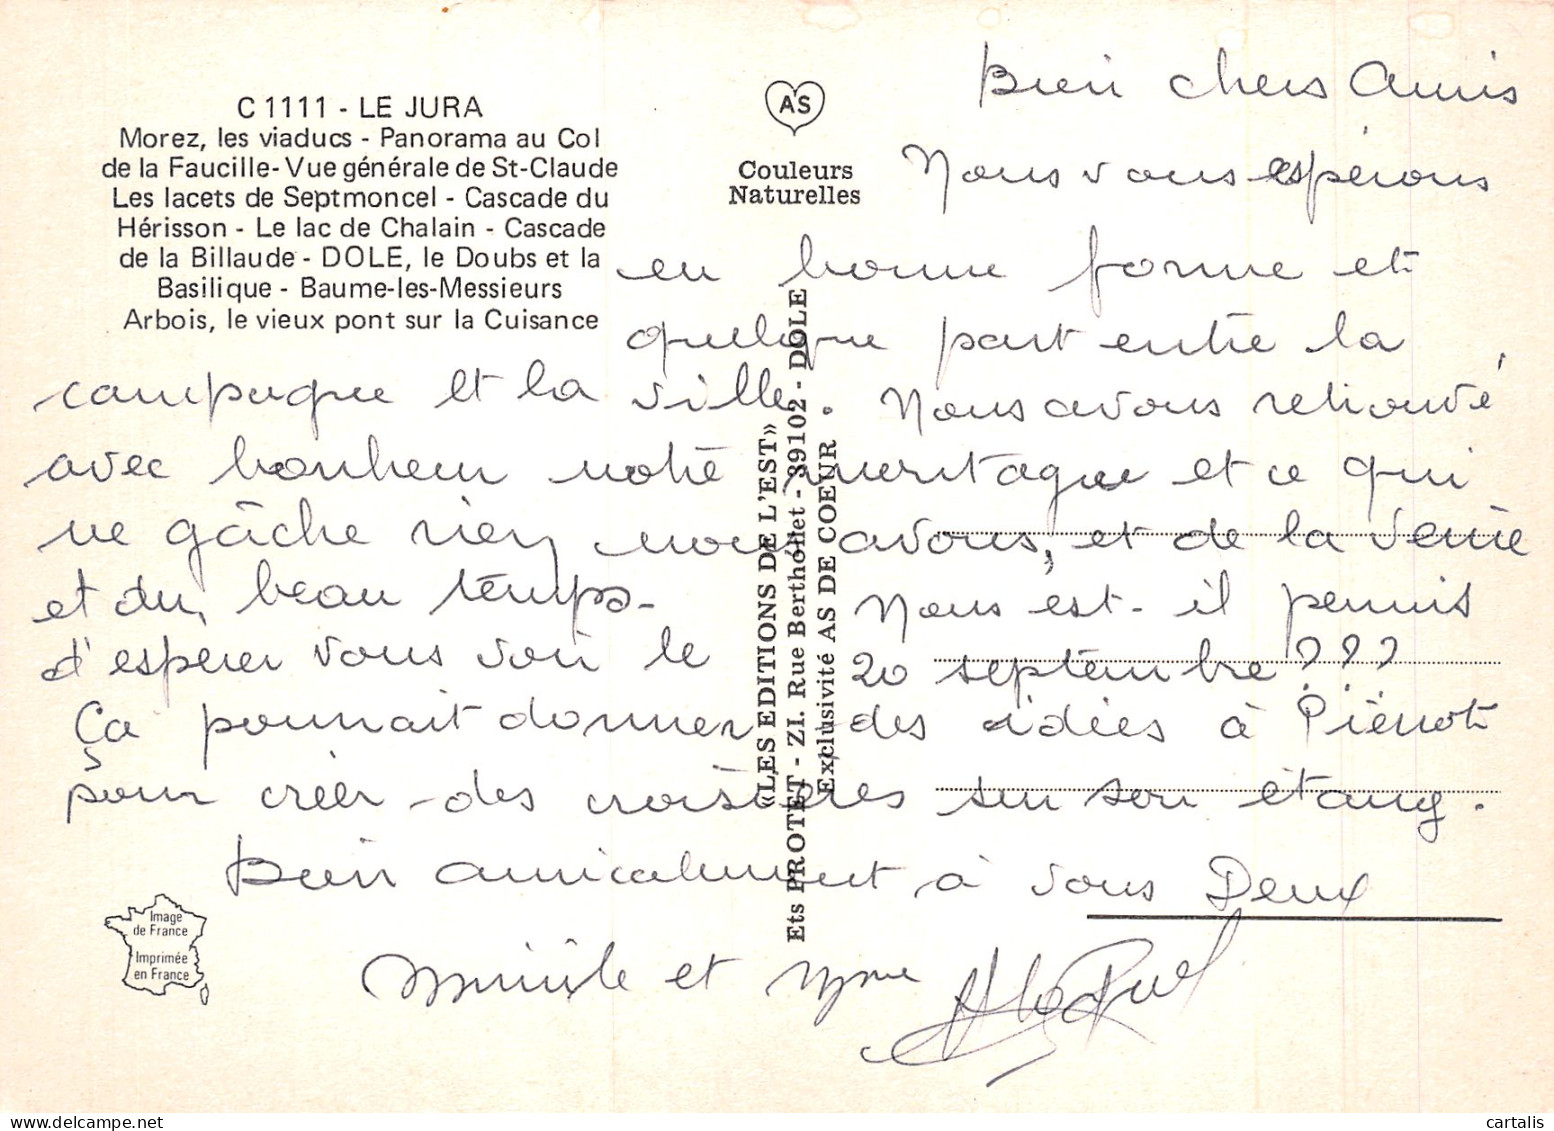 C 1111 - LE JURA
Morez, les viaducs - Panorama au Col
de la Faucille - Vue générale de St-Claude
Les lacets de Septmoncel - Cascade du
Hérisson - Le lac de Chalain - Cascade
de la Billaude - DOLE, le Doubs et la
Basilique - Baume-les-Messieurs
Arbois, le vieux pont sur la Cuisance
AS
Couleurs
Naturelles
«LES EDITIONS DE L'EST»
Ets PROTET - ZI. Rue Berthollet - 39102 - DOLE
Exclusivité AS DE COEUR
Bien chers Amis
Nous vous espérons
en bonne forme et
quelque part entre la
campagne et la ville. Nous avons retrouvé
avec bonheur notre montagne et ce qui
ne gâche rien nous avons, et de la veine
et du beau temps. Nous est-il permis
d'espérer vous voir le 20 septembre???
Ça pourrait donner des idées à Pierrot
pour créer des croisières sur son étang.
Bien amicalement à vous Deux
et Mme
Image
de France
Imprimée
en France
cartalis